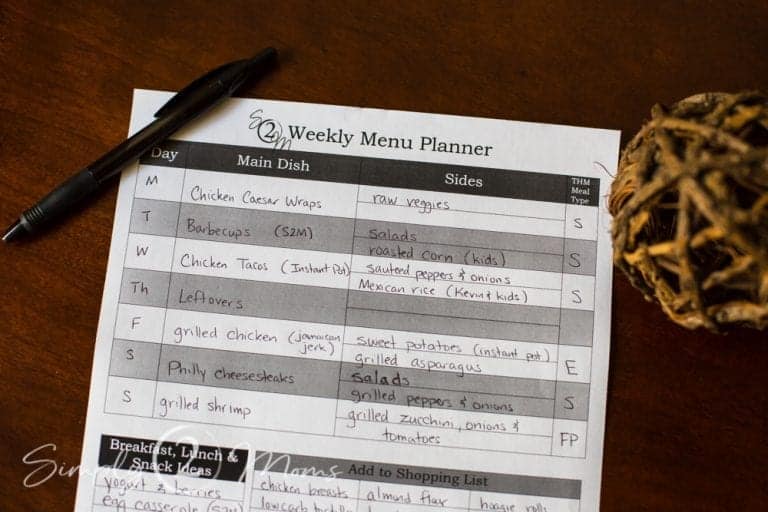 S2M Weekly Menu Planner
Day Main Dish Sides THM Meal Type
M Chicken Caesar Wraps raw veggies S
T Barbecups (S2M) salads S
roasted corn (kids)
W Chicken Tacos (Instant Pot) sauteed peppers & onions S
Mexican rice (Kevin & kids)
Th Leftovers
F grilled chicken (jamaican jerk) sweet potatoes (instant pot) E
grilled asparagus
S Philly cheesesteaks salads S
grilled peppers & onions
S grilled shrimp grilled zucchini, onions & FP
tomatoes
Breakfast, Lunch &
Snack Ideas
Add to Shopping List
yogurt & berries
chicken breasts almond flour hoagie rolls
egg casserole (S2M)
lowcarb
Simply 2 Moms